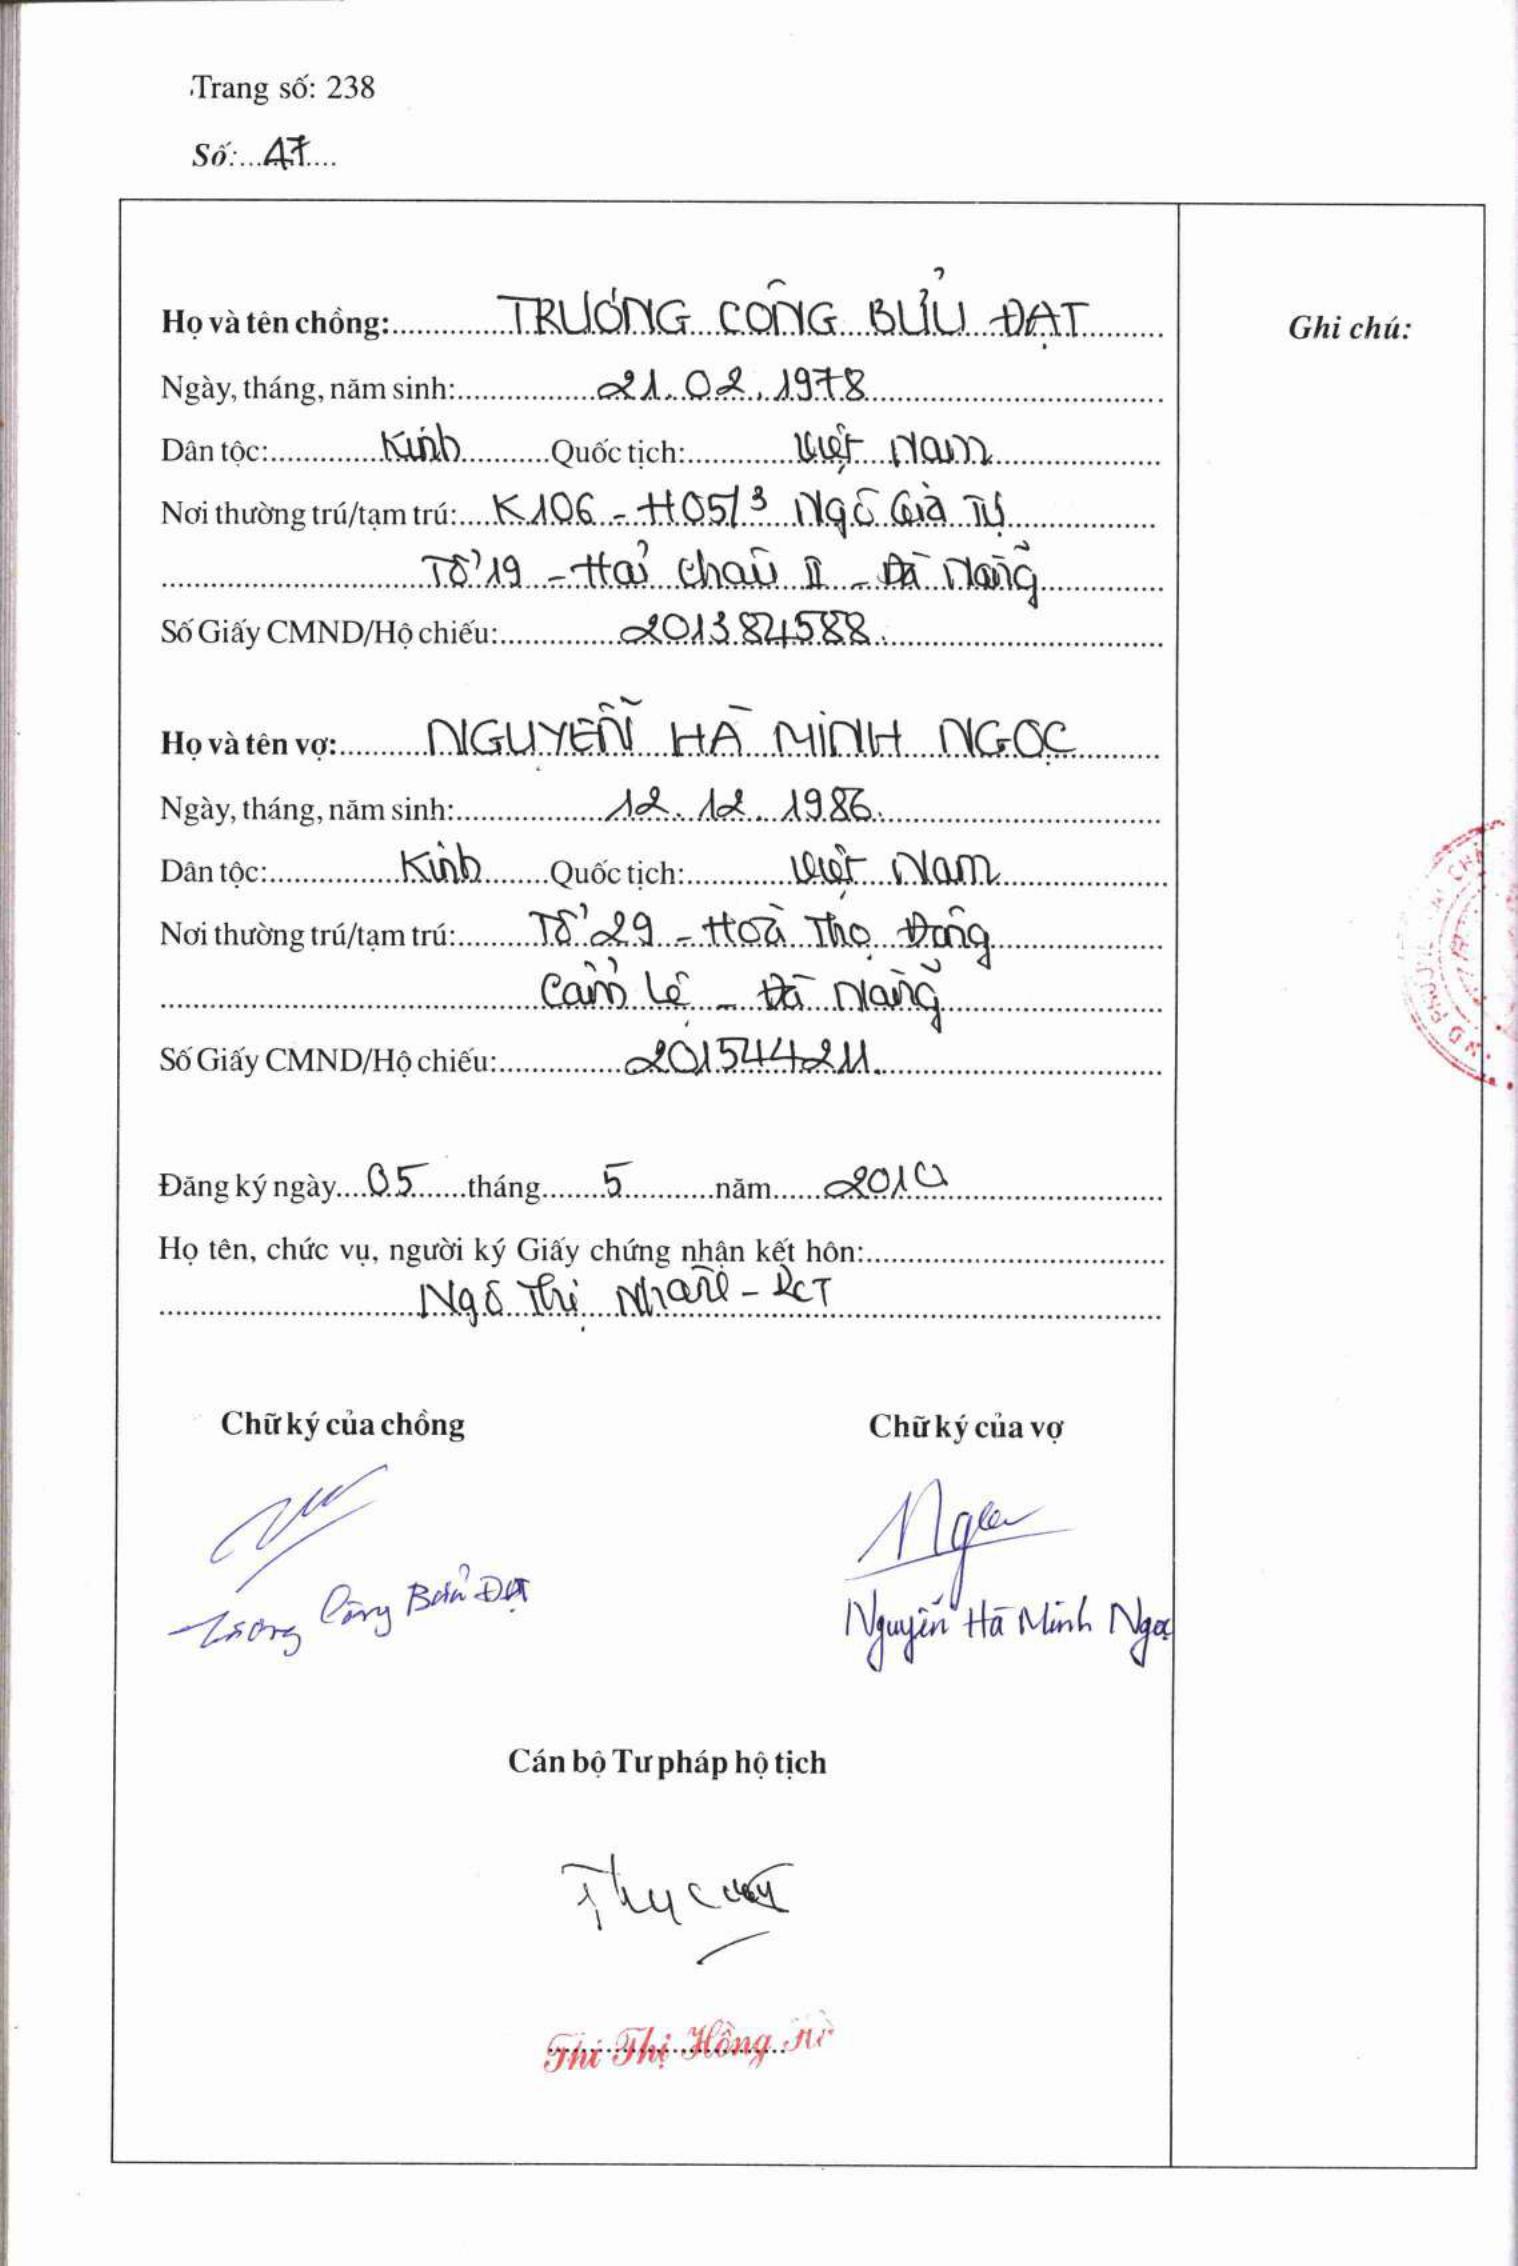 Trang số: 238
Số: 47
Họ và tên chồng: TRƯƠNG CÔNG BỬU ĐẠT
Ghi chú:
Ngày, tháng, năm sinh: 21.02.1978
Dân tộc: Kinh Quốc tịch: Việt Nam
Nơi thường trú/tạm trú: K106 - H05/3 Ngô Gia Tự
Tổ 19 - Hải Châu II - Đà Nẵng
Số Giấy CMND/Hộ chiếu: 201384588.
Họ và tên vợ: NGUYỄN HÀ MINH NGỌC
Ngày, tháng, năm sinh: 12.12.1986.
Dân tộc: Kinh Quốc tịch: Việt Nam
Nơi thường trú/tạm trú: Tổ 29 - Hoà Thọ Đông
Cẩm Lệ - Đà Nẵng
Số Giấy CMND/Hộ chiếu: 201544211.
Đăng ký ngày 05 tháng 5 năm 2010
Họ tên, chức vụ, người ký Giấy chứng nhận kết hôn:
Ngô Thị - PCT
Chữ ký của chồng Chữ ký của vợ
Trương Công Bửu Đạt
Nguyễn Hà Minh Ngọc
Cán bộ Tư pháp hộ tịch
Thị Hồng